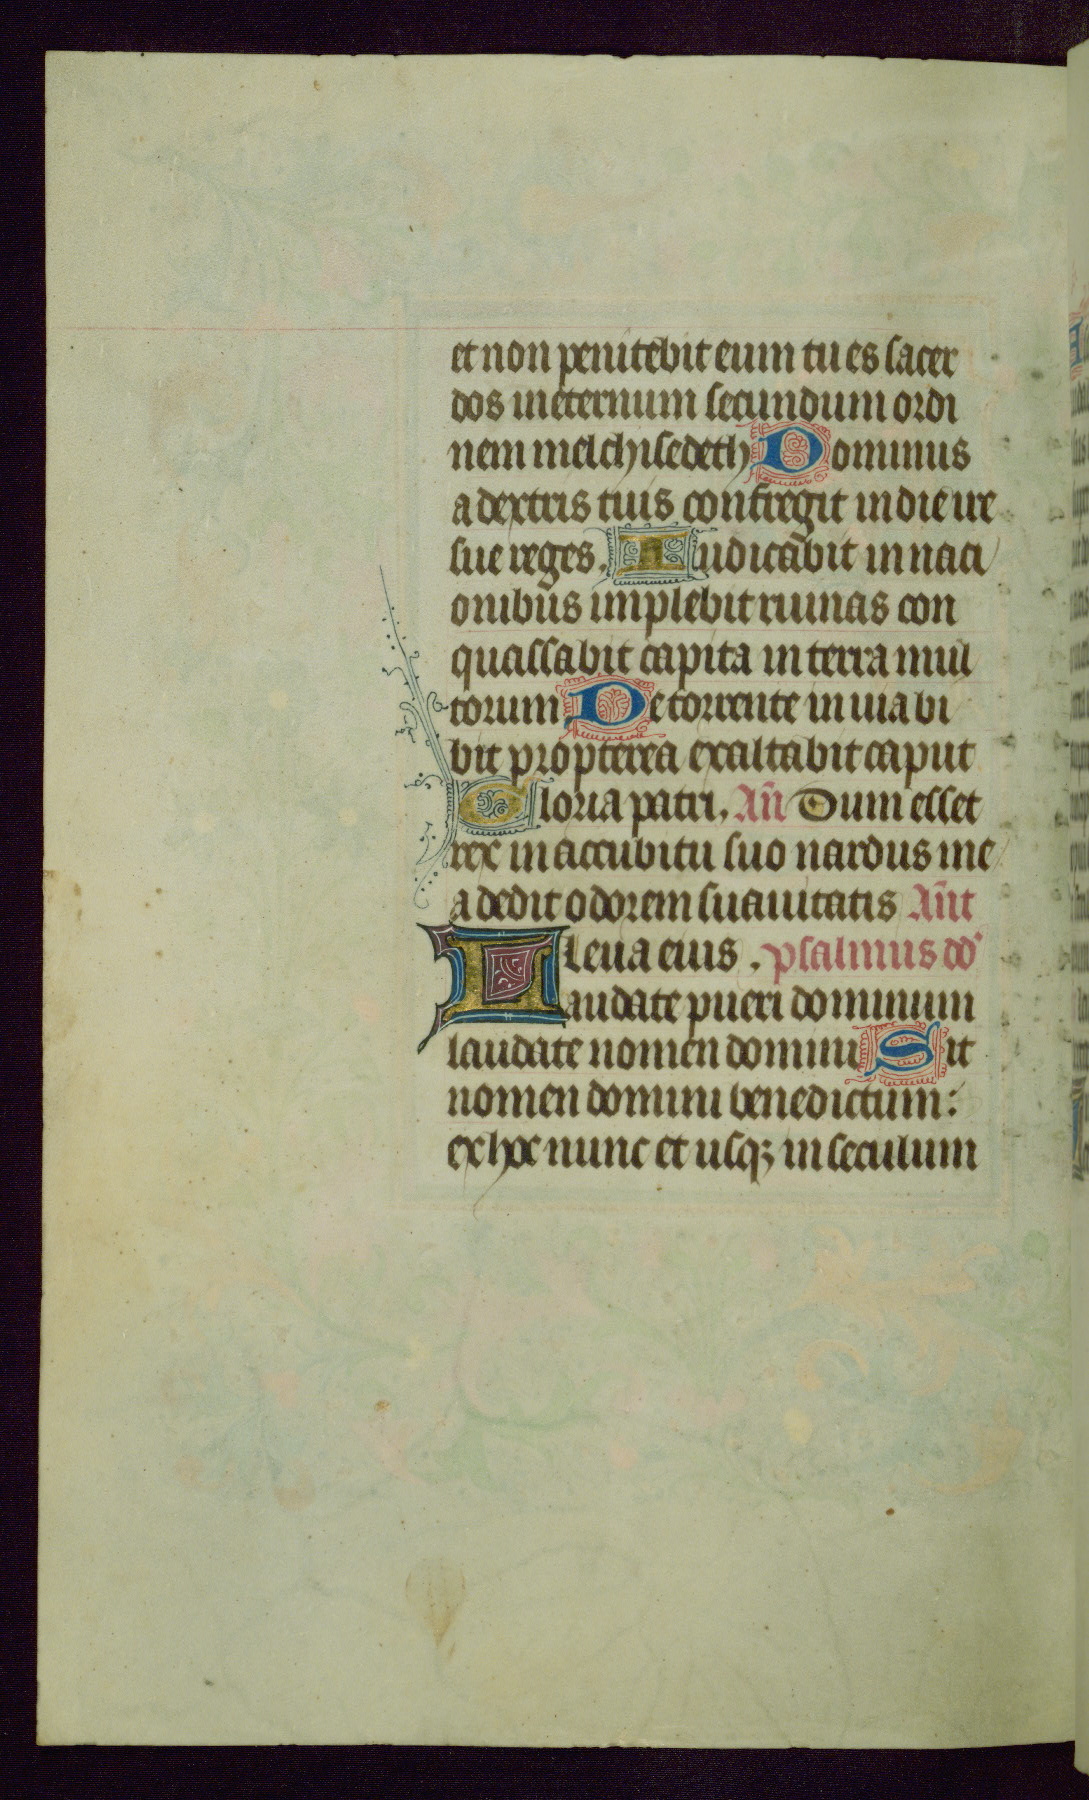 et non penitebit eum tu es sacer
dos in eternum secundum ordi
nem melchisedech Dominus
a dextris tuis confregit in die ire
sue reges. Iudicabit in naci
onibus implebit ruinas con
quassabit capita in terra mul
torum De torrente in uia bi
bit propterea exaltabit caput
Gloria patri. Añ Dum esset
rex in accubitu suo nardus me
a dedit odorem suauitatis Añt
Leua eius . psalmus dd
Laudate pueri dominum
laudate nomen domini Sit
nomen domini benedictum:
ex hoc nunc et usqꝫ in seculum